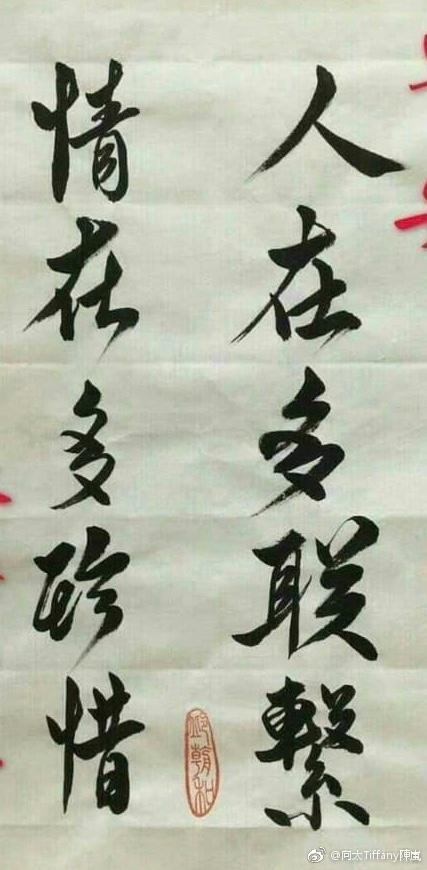 人在多联繫
情在多珍惜
@阿太Tiffany陳嵐